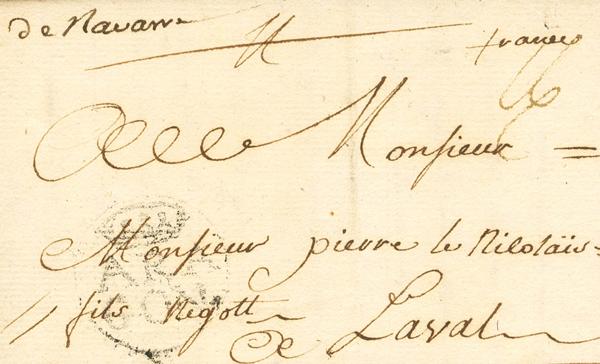 de Navarre
france
A Monsieur =
Monsieur pierre le Nicolaïs=
fils Negott
de Laval